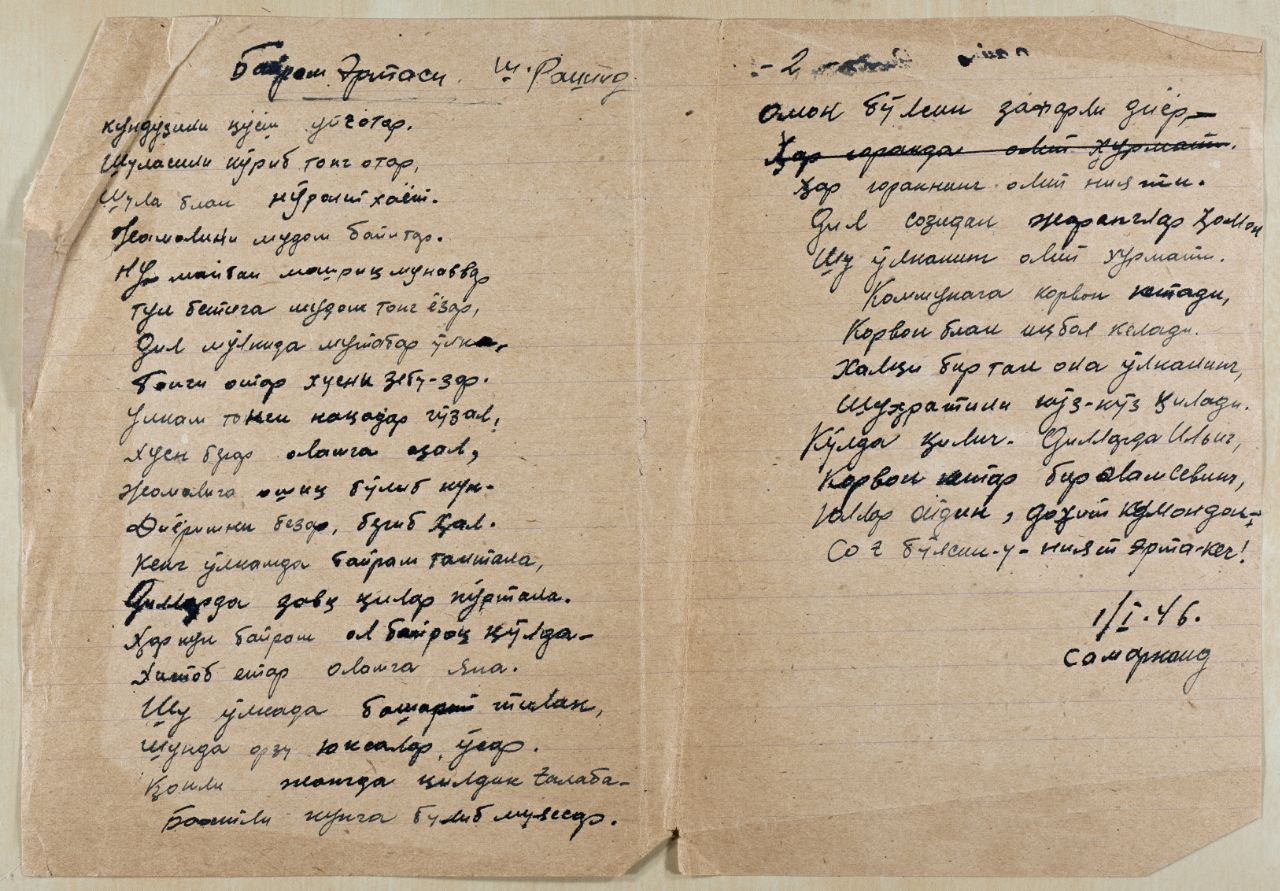 Байрам Эртаси. Ш. Рашид
Кундузили қуёш уйғотар.
Шуласини кўриб тонг отар,
Шула блан нўроний хаёт.
Жамолини мудом байнтар.
машриқ мунаввар
тун бетига мудом тонг ёзар,
Дил мулкида мўтабар ўлка,
Тонги отар хусни зебу-зар.
Улкам тонги нақадар гўзал,
Хусн берар оламга азал,
Жамолига ошиқ бўлиб кун-
Диёримни безар, бериб ҳал.
Кенг ўлкамда байрам тантана,
Дилларда завқ қилар пўртана.
Ҳар кун байрам ол байроқ қўлда-
Хитоб етар оламга яна.
Шу ўлкада башарий тилак,
Шунда орзу юксалар, ўсар.
Қонли жангда қилдик ғалаба-
Бахтли кунга булиб муяссар.
- 2 -
Омон бўлсин зафарли диёр,-
Ҳар юракдан олий ҳурмати.
Ҳар юракнинг олий нияти.
Дил созидан жаранглар ҳамон
Шу ўлканинг олий хурмати.
Коммунага карвон кетади,
Корвон блан иқбол келади.
Халқи бир тан она ўлканинг,
Шуҳратини кўз-кўз қилади.
Кўлда қилич. Дилларда Ильич,
Корвон кетар бир олам севинч,
Йўллар ойдин, доҳий кумондон,-
Соғ бўлсин-у-ният эрта-кеч!
1/I.46.
Самарканд